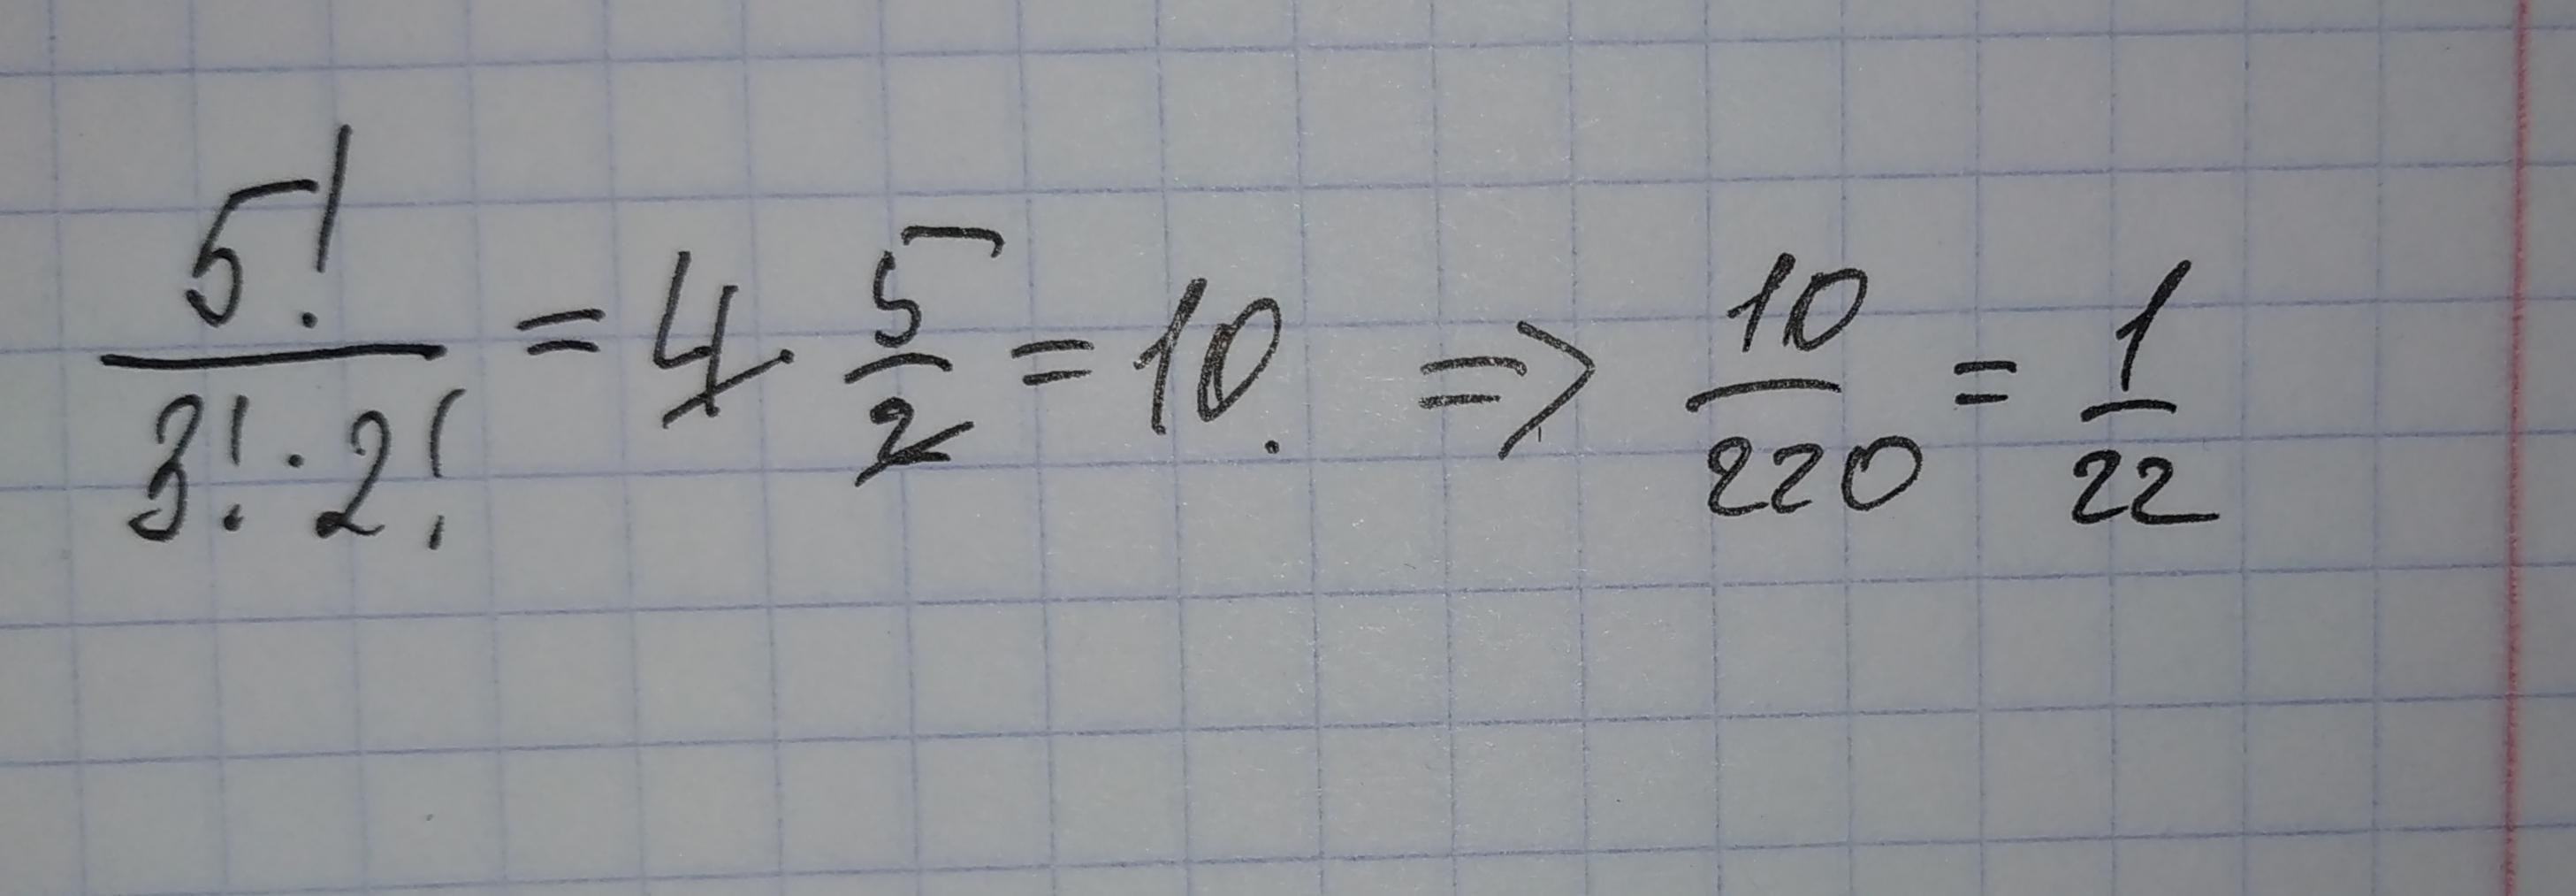 5!/(3!·2!) = 4·5/2 = 10. => 10/220 = 1/22